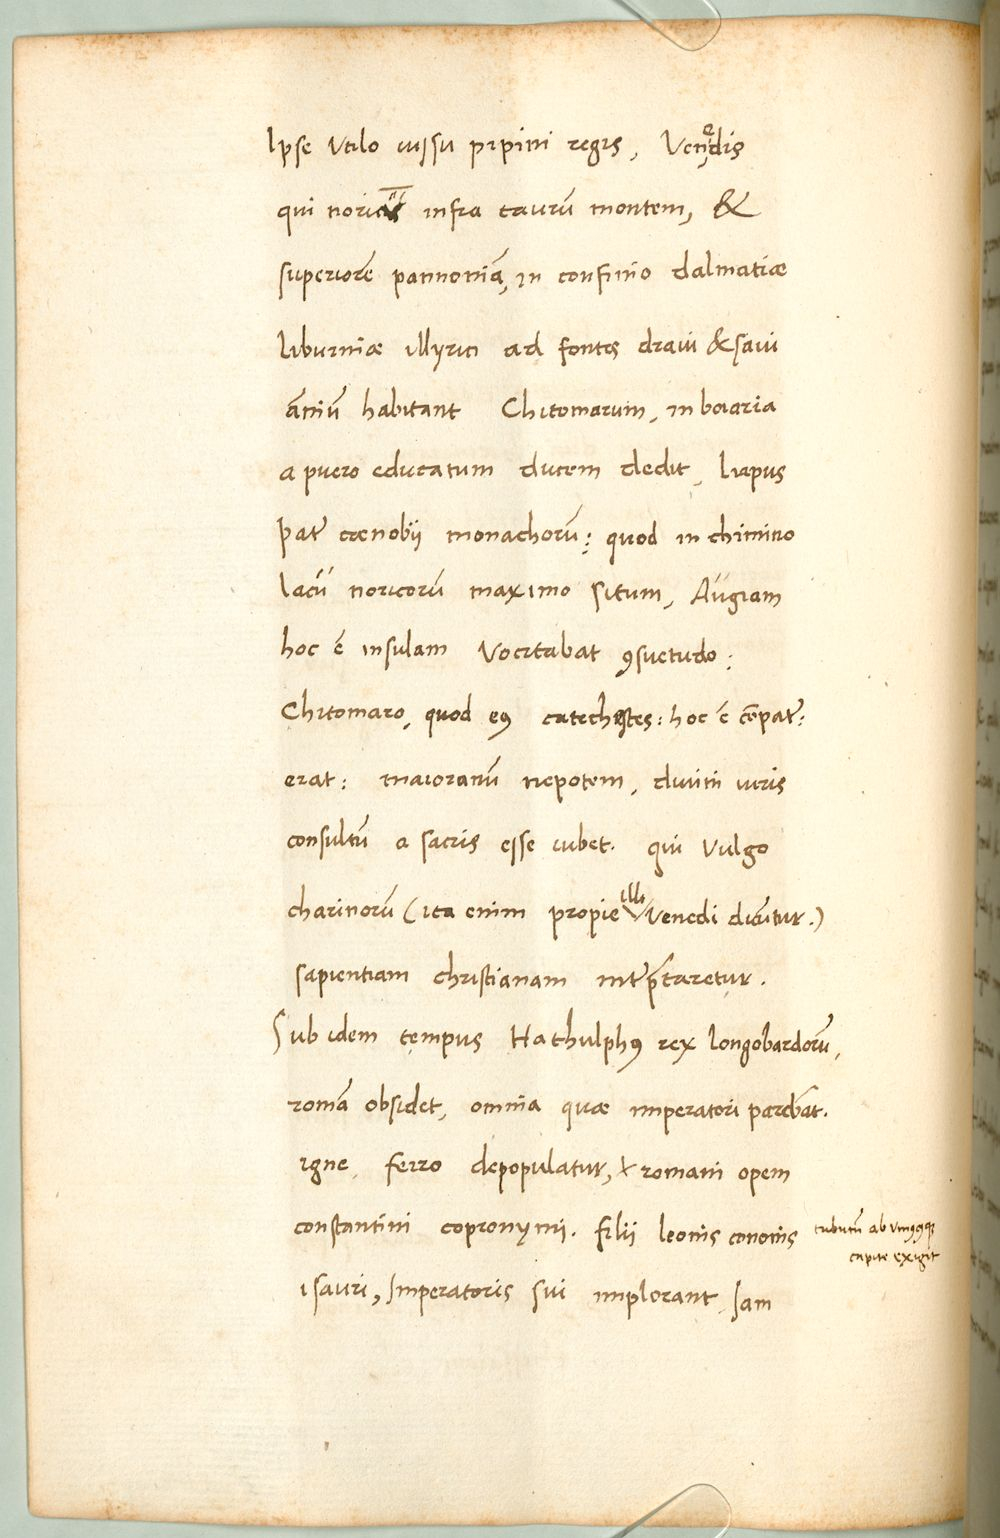 Ipse Utilo iussu pipini regis, Venedis
qui noricū infra taurū montem, &
superiorē pannoniā, in confinio dalmatiæ
liburniæ illyrici ad fontes dravi & savi
amniū habitant Chitomarum, in boiaria
a puero educatum ducem dedit, Lupus
pat̄ cœnobij monachorū: quod in chimino
lacū noricorū maximo situm, Augiam
hoc ē insulam vocitabat ꝯsuetudo:
Chitomaro, quod eꝰ catechistes: hoc ē cōpat̄:
erat: maioranū nepotem, divini iuris
consultū a sacris esse iubet. qui vulgo
charinorū (ita enim propie illi venedi dicūtur.)
sapientiam christianam int̄p̄taretur.
Sub idem tempus Hathulphꝰ rex longobardorū,
romā obsidet, omnia quæ imperatori parebāt.
igne, ferro depopulatur, & romani opem
constantini copronymi. filii leonis cononis
isauri, Imperatoris sui implorant, Iam
tributū ab
capite exigit